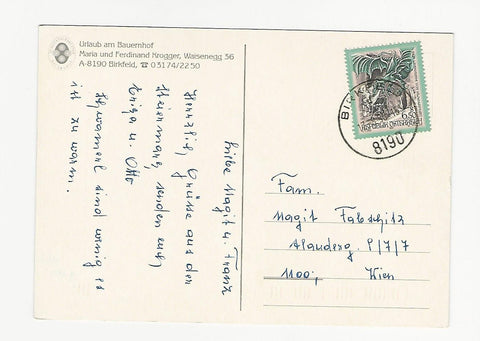 Urlaub am Bauernhof
Maria und Ferdinand Krogger, Waisenegg 36
A-8190 Birkfeld, ☎ 03174/22 50
Liebe Magit u. Franz
Herzliche Grüsse aus der
Steiermark, senden euch,
Erika u. Otto
Schwammerl sind wenig es
ist zu warm.
6.50
BIRKFELD
8190
Fam.
Magit Fabschitz
1/7/7
1100, Wien